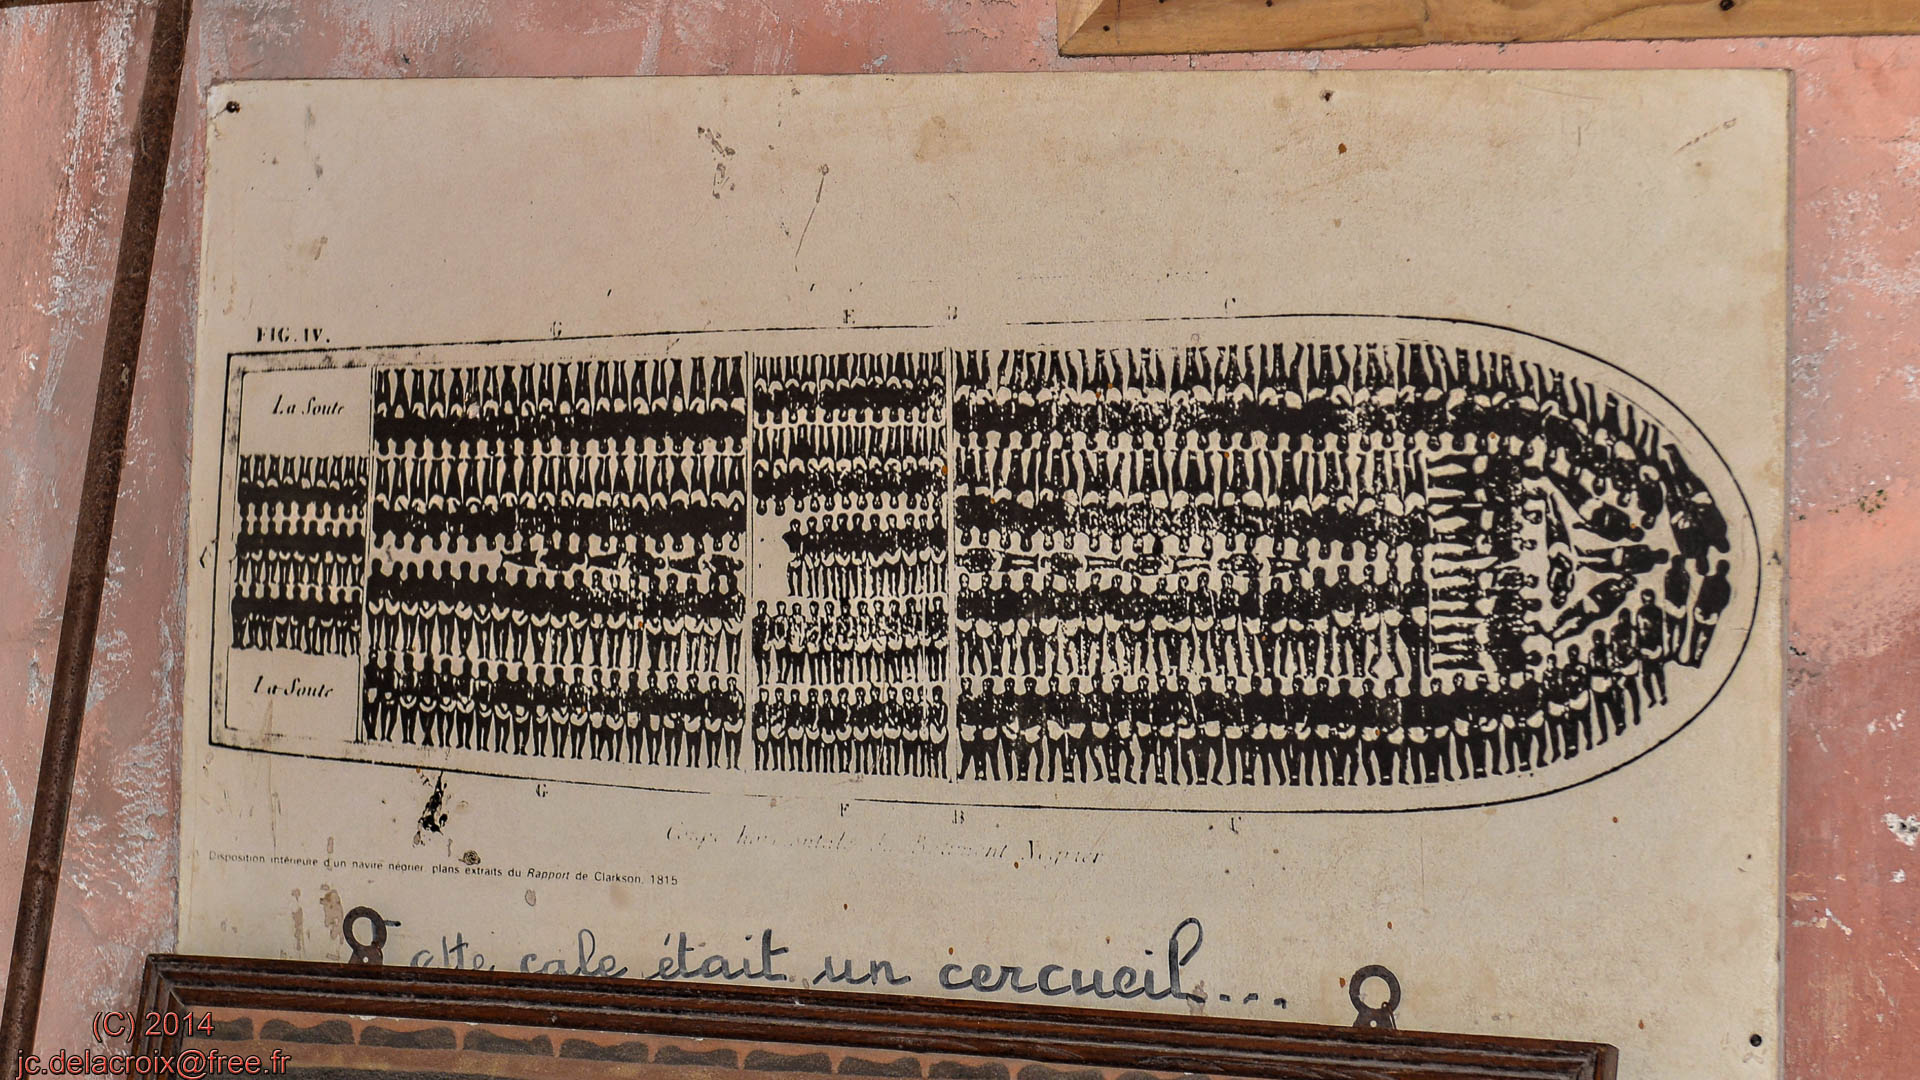 G E B C
FIG. IV.
La Soute
La Soute
G F B
Coupe horizontale du Bâtiment Négrier
Disposition intérieure d'un navire négrier, plans extraits du Rapport de Clarkson, 1815
cale était un cercueil...
(C) 2014
jc.delacroix@free.fr